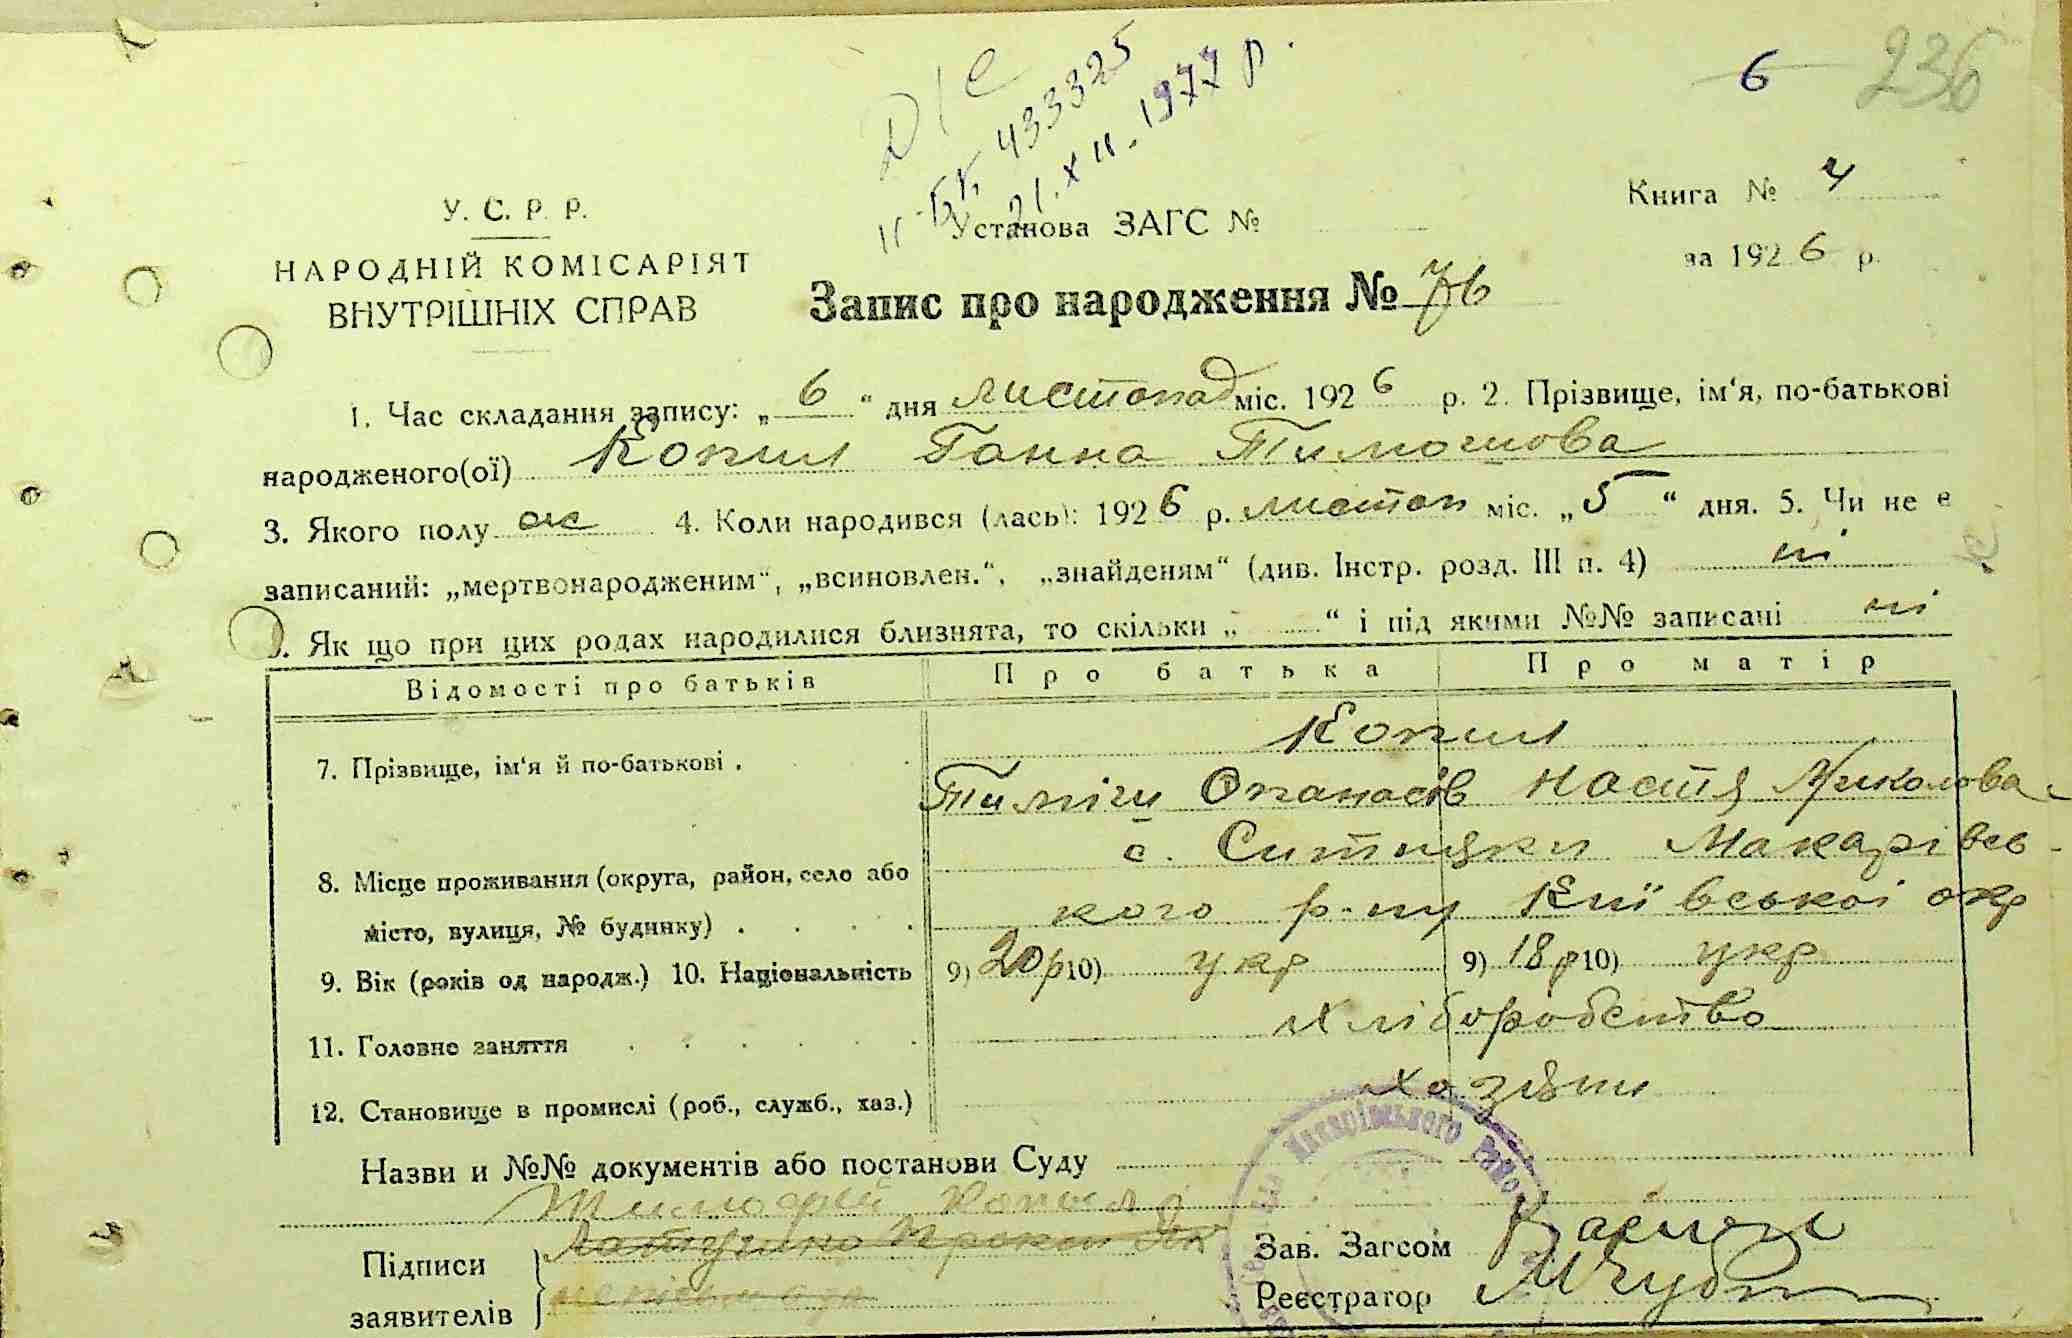 6 236
ДІС
ІІ-БК 433325
21.XII.1977 р.
У. С. Р. Р.
НАРОДНІЙ КОМІСАРІЯТ
ВНУТРІШНІХ СПРАВ
Установа ЗАГС №
Книга № 4
за 1926 р.
Запис про народження № 76
1. Час складання запису: „ 6 “ дня листопад міс. 1926 р. 2. Прізвище, ім‘я, по-батькові
народженого(ої) Копил Ганна Тимошова
3. Якого полу ж 4. Коли народився (лась): 1926 р. листоп міс. „ 5 “ дня. 5. Чи не є
записаний: „мертвонародженим“, „всиновлен.“, „знайденям“ (див. Інстр. розд. III п. 4) ні
. Як що при цих родах народилися близнята, то скільки „ “ і під якими №№ записані ні
Відомості про батьків Про батька Про матір
Копил
7. Прізвище, ім‘я й по-батькові . Тиміш Опанасів Настя Миколова
с. Ситняки Макарівсь-
8. Місце проживання (округа, район, село або
місто, вулиця, № будинку) . . . . кого р-ну Київської окр
9. Вік (років од народж.) 10. Національність 9) 20 р 10) укр 9) 18 р 10) укр
11. Головне заняття . . . . . . хліборобство
12. Становище в промислі (роб., служб., хаз.) хозяїн
Назви и №№ документів або постанови Суду
Макарівського Райо
Тимофій Копил
Підписи
заявителів
Зав. Загсом
Реєстратор